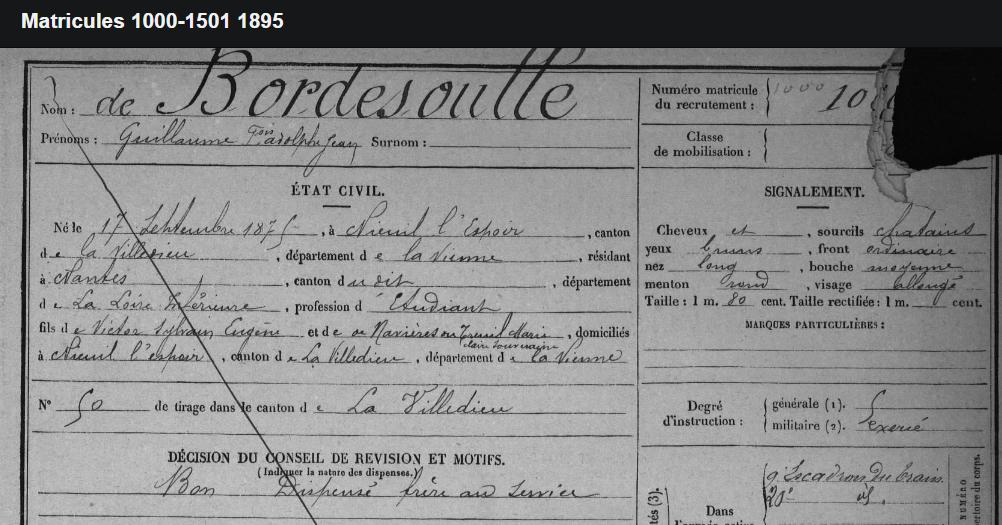 Matricules 1000-1501 1895
Nom : de Bordesoulle
Prénoms : Guillaume Fois adolphe Jean Surnom :
Numéro matricule
du recrutement : 1000 10
Classe
de mobilisation :
ÉTAT CIVIL.
Né le 17 Septembre 1875, à Nieuil l'Espoir, canton
de la Villedieu, département de la Vienne, résidant
à Nantes, canton du dit, département
de La Loire Inférieure, profession d'Etudiant
fils de Victor Sylvain Eugène et de Marie
claire, domiciliés
à Nieuil l'espoir, canton de La Villedieu, département de la Vienne
N° 50 de tirage dans le canton de La Villedieu
DÉCISION DU CONSEIL DE REVISION ET MOTIFS.
(Indiquer la nature des dispenses.)
Bon Dispensé frère au service
SIGNALEMENT.
Cheveux et, sourcils chatains
yeux bruns, front ordinaire
nez long, bouche moyenne
menton rond, visage allongé
Taille : 1 m. 80 cent. Taille rectifiée : 1 m. cent.
MARQUES PARTICULIÈRES :
Degré
d'instruction :
générale (1). 5
militaire (2). exercé
Dans
9e Escadron du train
20e
NUMÉRO